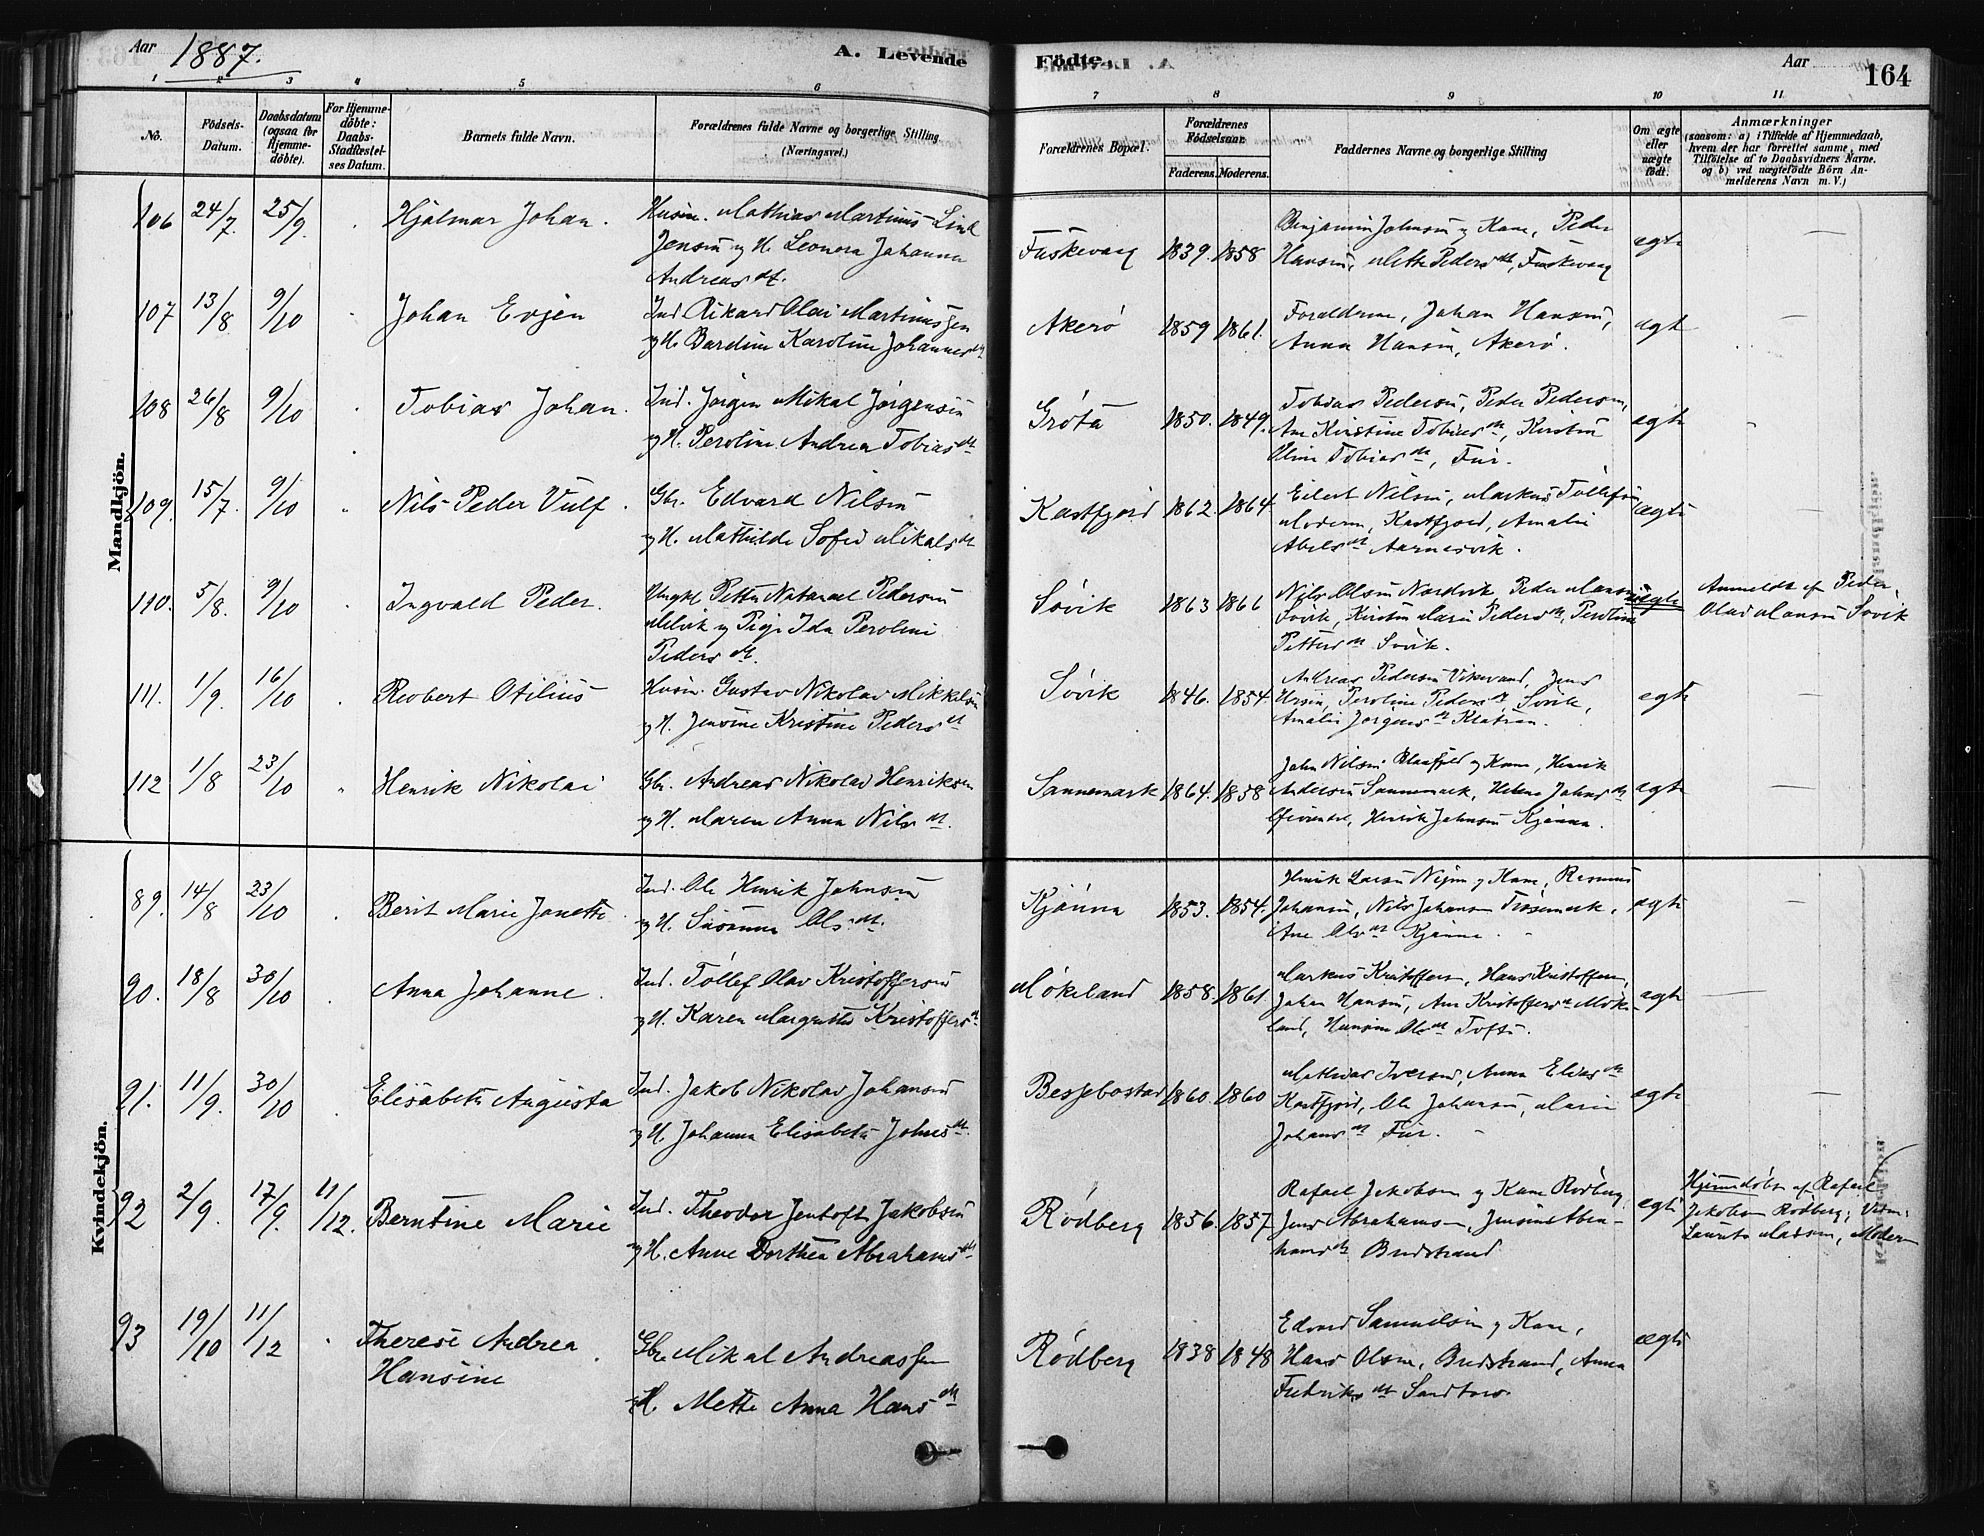 Aar 1887.
A. Levende
Fødte.
Aar
164
1 2 3 4 5 6 7 8 9 10 11
No.
Fødsels-
Datum.
Daabsdatum
(ogsaa for
Hjemme-
døbte).
For Hjemme-
døbte:
Daabs-
Stadfæstel-
ses Datum.
Barnets fulde Navn.
Forældrenes fulde Navne og borgerlige Stilling
(Næringsvei.)
Forældrenes Bopæl.
Forældrenes
Fødselsaar.
Faderens. Moderens.
Faddernes Navne og borgerlige Stilling
Om ægte
eller
uægte
født.
Anmærkninger
(saasom: a) i Tilfælde af Hjemmedaab,
hvem der har forrettet samme, med
Tilføielse af to Daabsvidners Navne.
og b) ved uægtefødte Børn An-
melderens Navn m. V.)
Mandkjøn.
106 24/7. 25/9. Hjalmar Johan.
Husm. Mathias Martinus Lind
Jensen og H. Leonora Johanna
Andreasdt.
Fuskevaag 1839. 1858
Benjamin Johnsen og Kone, Peder
Hansen, Mette Pedersdt, Fuskevaag
ægte
107 13/8 9/10 Johan Evjen
Ind. Rikard Olai Martinussen
og H. Bardine Karoline Johannesdt
Akerø 1859 1861.
Forældrene, Johan Hansen,
Anna Hansen, Akerø.
ægte
108 26/8 9/10 Tobias Johan.
Ind. Jørgen Mikal Jørgensen
og H. Peroline Andrea Tobiasdt
Grøta 1850. 1849.
Tobias Pedersen, Peder Pedersen,
Ane Kirstine Tobiasdt, Kirstin
Oline Tobiasdt, Fur.
ægte
109. 15/7. 9/10 Nils Peder Vulf.
Gbr. Edvard Nilsen
og H. Mathilde Sofie Mikalsdt
Kastfjord 1862. 1864
Eilert Nilsen, Markus Tollefsen
Moderen, Kastfjord, Amalie
Abelsdt Aarnesvik.
ægte
110. 5/8. 9/10 Ingvald Peder.
Ungkl Petter Natanael Pedersen
Melvik og Pige Ida Peroline
Pedersdt.
Søvik 1863 1866
Nils Olsen Nordvik, Peder Monsen
Søvik, Kirsten Marie Pedersdt, Peroline
Pettersdt Søvik.
uægte
Anmeldt af Peder
Olai Monsen Søvik
111. 1/9. 16/10 Robert Otilius
Husm. Gustav Nikolai Mikkelsen
og H. Jensine Kristine Pedersdt
Søvik 1846. 1854.
Andreas Pedersen Vikevand, Jens
Ursin, Peroline Pedersdt Søvik,
Amalie Jørgensdt
ægte
112 1/8 23/10 Henrik Nikolai
Gbr. Andreas Nikolai Henriksen
og H. Maren Anna Nilsdt.
Sannemark 1864. 1858
John Nilsen Blaafjeld og Kone, Henrik
Andersen Sannemark, Helene Johnsdt
Henrik Johnsen Kjønna.
ægte
Kvindekjøn.
89. 14/8 23/10 Berit Marie Janette
Ind. Ole Henrik Johnsen
og H. Susanna Olsdt.
Kjønna 1853. 1854.
Henrik Larsen og Kone, Rasmus
Johansen, Nils Johansen
Ane Olsdt Kjønna.
ægte
90. 18/8 30/10 Anna Johanne.
Ind. Tollef Olav Kristoffersen
og H. Karen Margrethe Kristoffersdt
Møkeland 1858. 1861.
Markus Kristoffersen, Hans Kristoffersen,
Johan Hansen, Ane Kristoffersdt Møke-
land, Hansine Olsdt Tofte.
ægte
91. 11/9. 30/10 Elisabeth Augusta
Ind. Jakob Nikolai Johansen
og H. Johanna Elisabeth Johnsdt.
Bessebostad 1860. 1860
Mathias Iversen, Anna Eliasdt
Kastfjord, Ole Johansen, Marie
Johansdt Fur.
ægte
92 2/9. 17/9. 11/12. Berntine Marie
Ind. Theodor Jentoft Jakobsen
og H. Anne Dorthea Abrahamsdt
Rødberg 1856. 1857
Rafael Jakobsen og Kone Rødberg,
Jens Abrahamsen, Jensine Abra-
hamsdt Bredstrand
ægte
Hjemmedøbt af Rafael
Jakobsen Rødberg; Vidn:
Laurits Madsen, Moderen
93 19/10 11/12 Therese Andrea
Hansine
Gbr. Mikal Andreassen
og H. Mette Anna Hansdt
Rødberg 1838 1848
Edvard Samuelsen og Kone,
Hans Olsen, Bredstrand, Anna
Fredriksdt Sandtorv
ægte